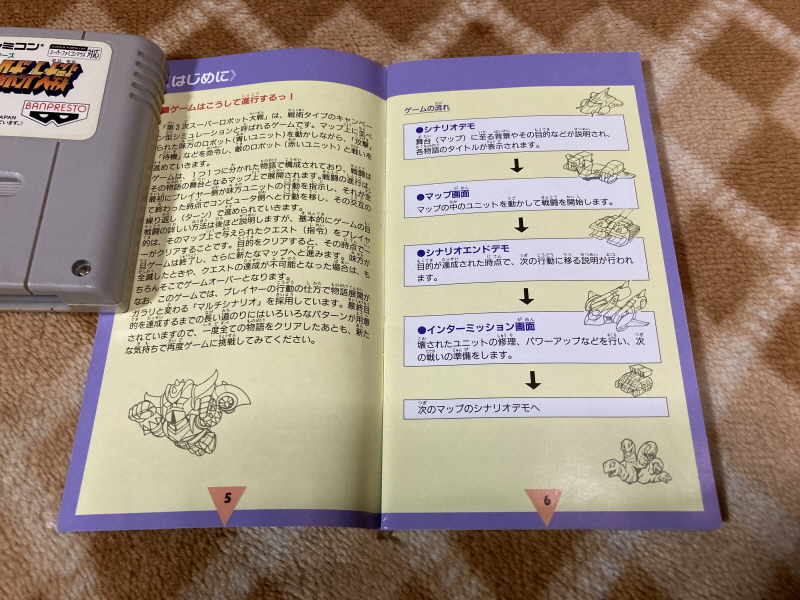 ミコン
スーパーファミコンマウス 対応
ース
BANPRESTO
JAPAN
ています。
はじめに》
■ゲームはこうして進行するっ！
「第3次スーパーロボット大戦」は、戦術タイプのキャンペー
ン型シミュレーションと呼ばれるゲームです。マップ上に並べ
られた味方のロボット(青いユニット)を動かしながら、「攻撃」
「待機」などを命令し、敵のロボット(赤いユニット)と戦いを
進めていきます。
ゲームは、1つ1つに分かれた物語で構成されており、戦闘は
その物語の舞台となるマップ上で展開されます。戦闘の進行は、
最初にプレイヤー側が味方ユニットの行動を指示し、それが全
て終わった時点でコンピュータ側へと行動を移し、その交互の
繰り返し(ターン)で進められていきます。
戦闘の詳しい方法は後ほど説明しますが、基本的にゲームの目
的は、そのマップ上で与えられたクエスト(指令)をプレイヤ
ーがクリアすることです。目的をクリアすると、その時点で
ゲームは終了し、さらに新たなマップへと進みます。味方が
全滅したときや、クエストの達成が不可能となった場合は、も
ちろんそこでゲームオーバーとなります。
なお、このゲームでは、プレイヤーの行動の仕方で物語展開が
ガラリと変わる「マルチシナリオ」を採用しています。最終目
的を達成するまでの長い道のりにはいろいろなパターンが用意
されていますので、一度全ての物語をクリアしたあとも、新た
な気持ちで再度ゲームに挑戦してみてください。
5
ゲームの流れ
●シナリオデモ
舞台(マップ)に至る背景やその目的などが説明され、
各物語のタイトルが表示されます。
●マップ画面
マップの中のユニットを動かして戦闘を開始します。
●シナリオエンドデモ
目的が達成された時点で、次の行動に移る説明が行われ
ます。
●インターミッション画面
壊されたユニットの修理、パワーアップなどを行い、次
の戦いの準備をします。
次のマップのシナリオデモへ
6